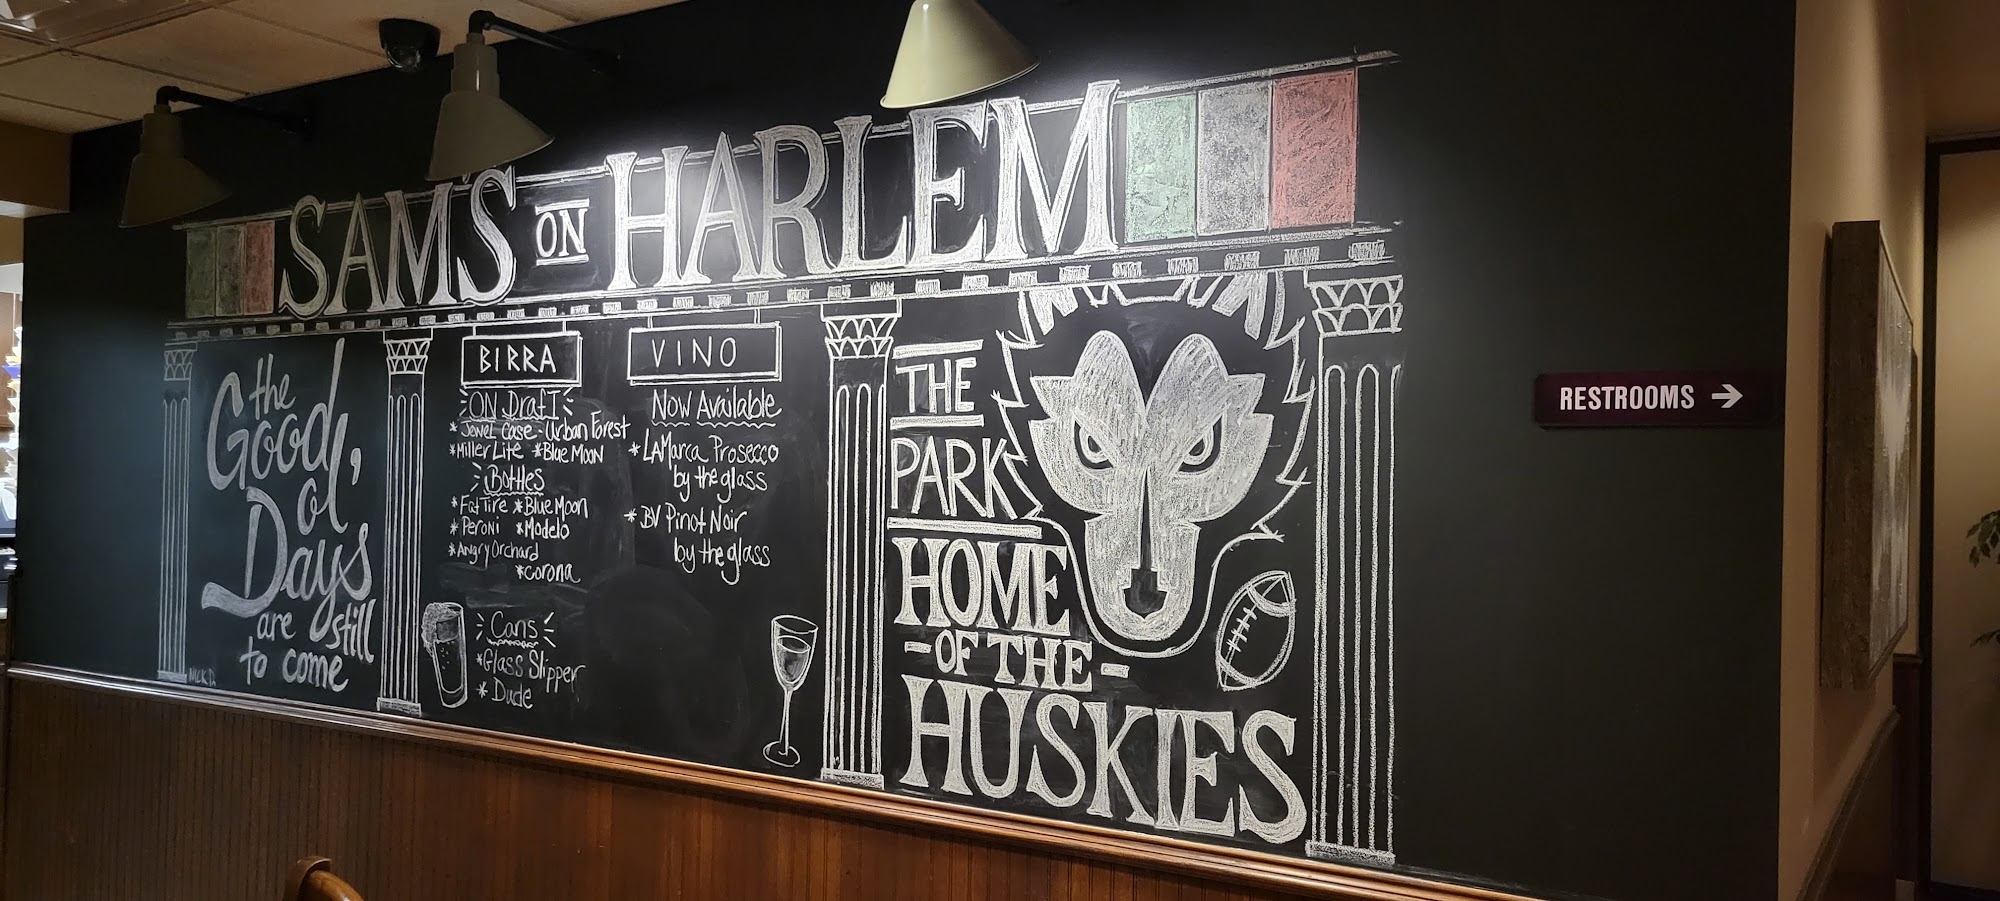 SAM'S ON HARLEM
the
Good,
ol
Days
are still
to come
NICK D.
BIRRA
ON Draft
* Jewel Case - Urban Forest
* Miller Lite * Blue Moon
Bottles
* Fat Tire * Blue Moon
* Peroni * Modelo
* Angry Orchard
* Corona
Cans
* Glass Slipper
* Dude
VINO
Now Available
* LAMarca Prosecco
by the glass
* BV Pinot Noir
by the glass
THE
PARK
HOME
- OF THE -
HUSKIES
RESTROOMS →